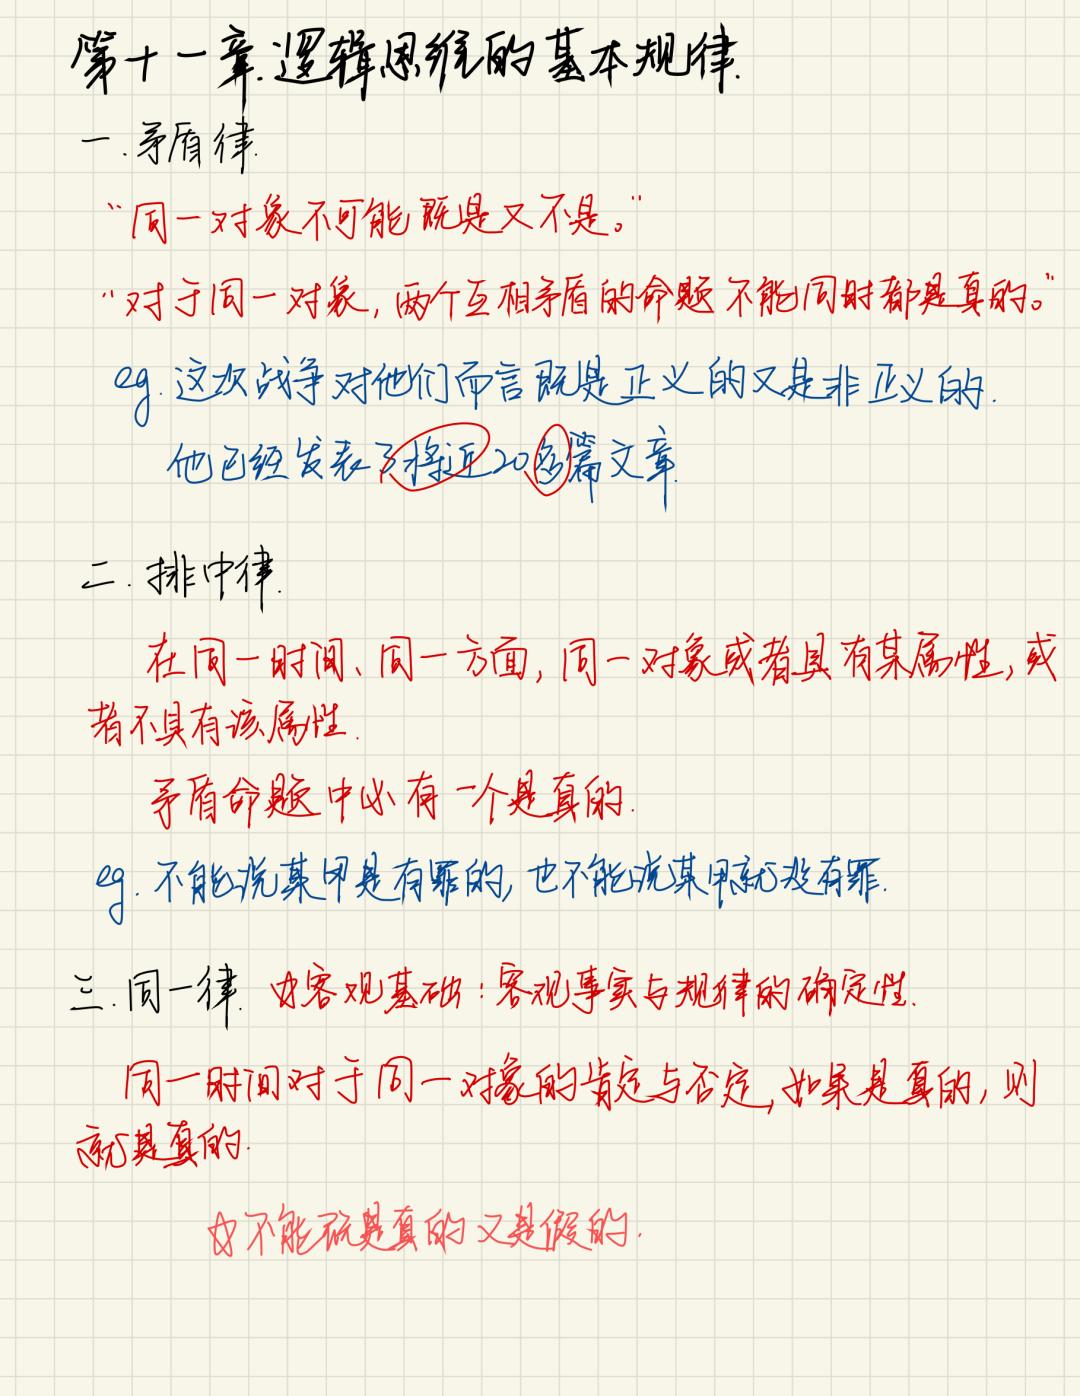 第十一章.逻辑思维的基本规律.
一.矛盾律.
“同一对象不可能既是又不是。”
“对于同一对象,两个互相矛盾的命题不能同时都是真的。”
eg.这次战争对他们而言既是正义的又是非正义的.
他已经发表了将近20多篇文章.
二.排中律.
在同一时间、同一方面,同一对象或者具有某属性,或
者不具有该属性.
矛盾命题中必有一个是真的.
eg.不能说某甲是有罪的,也不能说某甲就没有罪.
三.同一律. ☆客观基础:客观事实与规律的确定性.
同一时间对于同一对象的肯定与否定,如果是真的,则
就是真的.
☆不能既是真的又是假的.